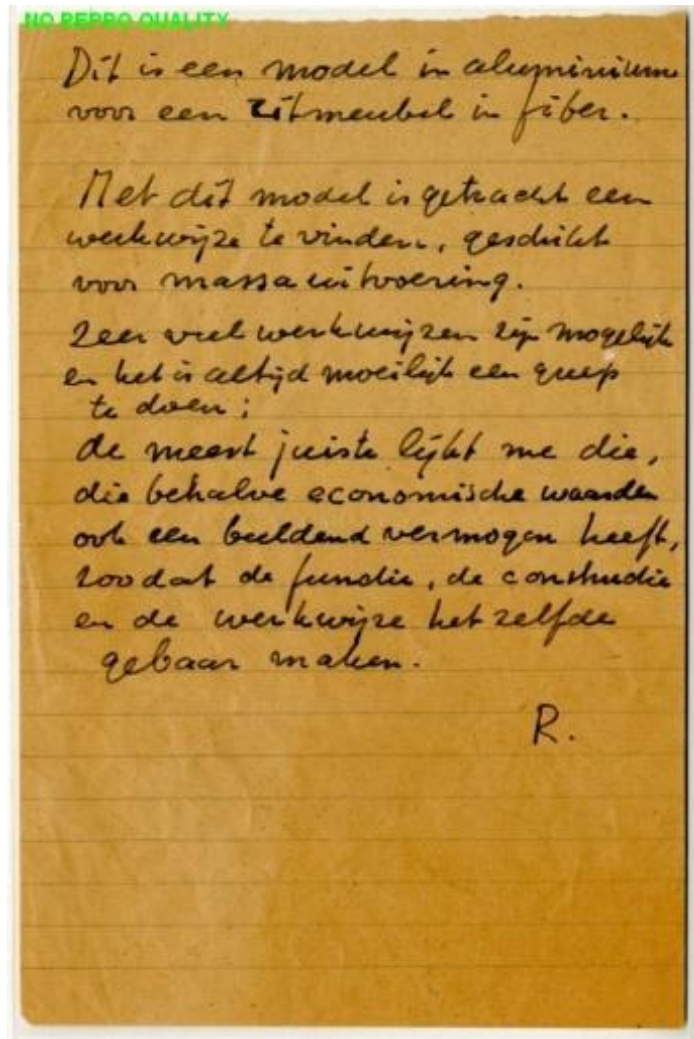 NO REPRO QUALITY
Dit is een model in aluminium
voor een zitmeubel in fiber.
Met dit model is getracht een
werkwijze te vinden, geschikt
voor massa uitvoering.
Zeer veel werkwijzen zijn mogelijk
en het is altijd moeilijk een greep
te doen;
de meest juiste lijkt me die,
die behalve economische waarden
ook een beeldend vermogen heeft,
zoodat de functie, de constructie
en de werkwijze het zelfde
gebaar maken.
R.